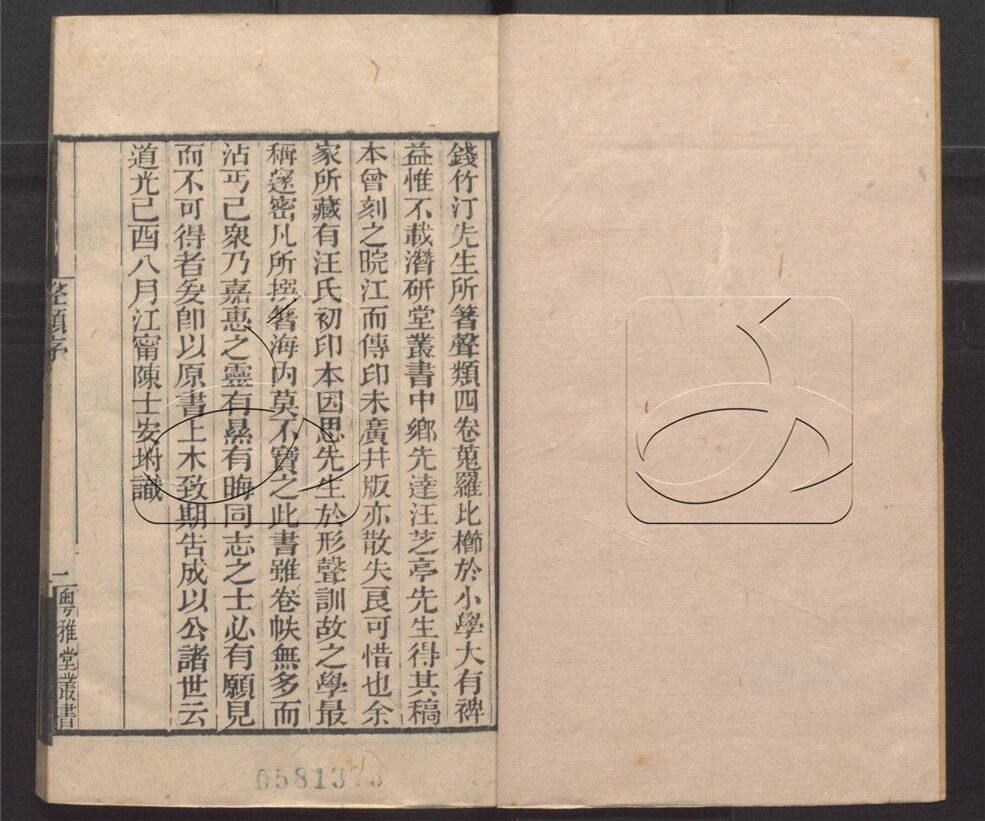 錢竹汀先生所箸聲類四卷蒐羅比櫛於小學大有裨
益惟不載潛研堂叢書中鄉先達汪芝亭先生得其稿
本曾刻之皖江而傳印未廣幷版亦散失良可惜也余
家所藏有汪氏初印本因思先生於形聲訓故之學最
稱邃密凡所撰箸海內莫不寶之此書雖卷帙無多而
沾丐己衆乃嘉惠之靈有㬎有晦同志之士必有願見
而不可得者爰卽以原書上木致期告成以公諸世云
道光己酉八月江甯陳士安坿識
聲類序
二
粵雅堂叢書